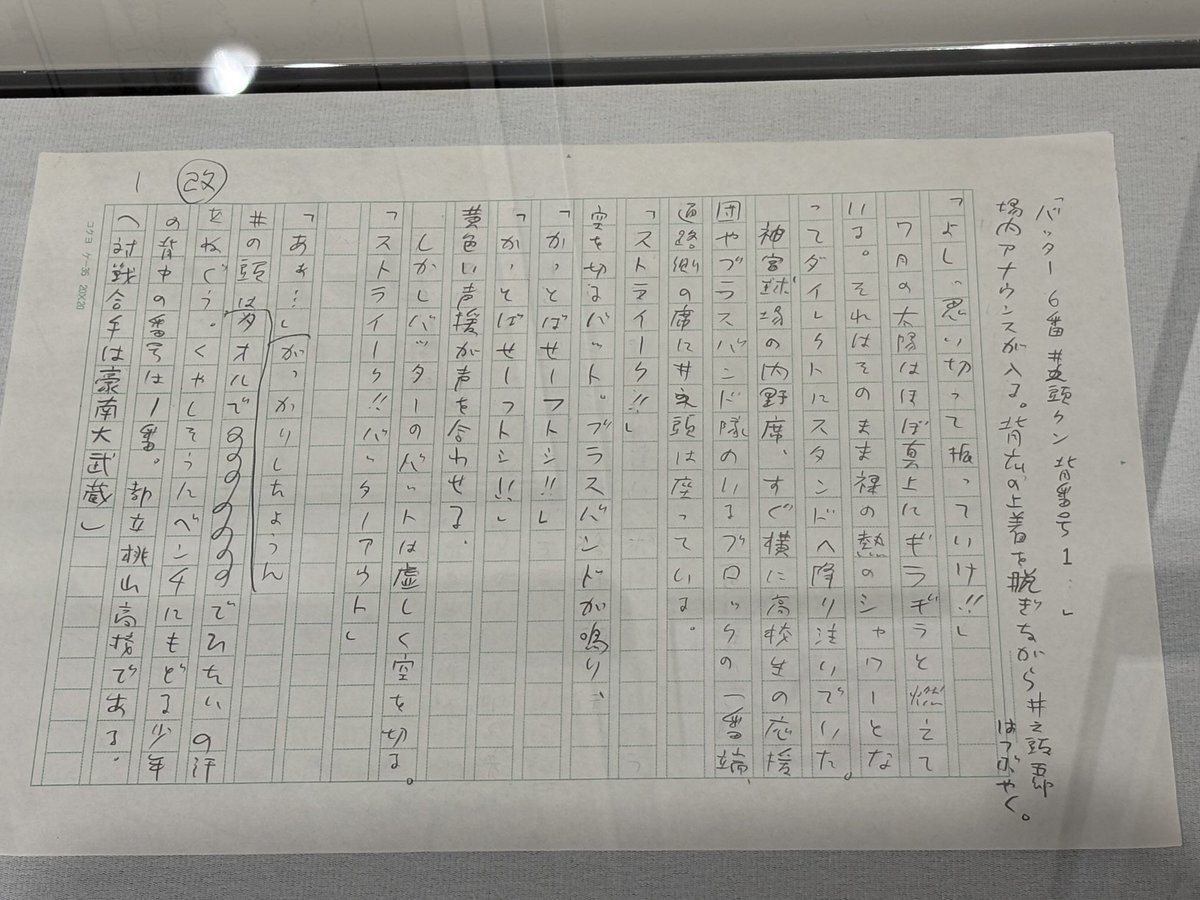 「バッター6番 井之頭クン 背番号1…」
場内アナウンスが入る。背広の上着を脱ぎながら井之頭五郎
はつぶやく。
「よし、思い切って振っていけ!!」
7月の太陽はほぼ真上にギラギラと燃えて
いる。それはそのまま裸の熱のシャワーとな
ってダイレクトにスタンドへ降り注いでいた。
神宮球場の内野席、すぐ横に高校生の応援
団やブラスバンド隊のいるブロックの一番端、
通路側の席に井之頭は座っている。
「ストライーク!!」
空を切るバット。ブラスバンドが鳴り、
「かっとばせーフトシ!!」
「かっとばせーっトシ!!」
黄色い声援が声を合わせる。
しかしバッターのバットは虚しく空を切る。
「ストライーク!!バッターアウト」
「あぁ…」
がっかりしちょうん
井の頭はタオルで
でひたいの汗
をぬぐう。くやしそうにベンチにもどる少年
の背中の番号は1番。都立桃山高校である。
へ対戦合手は豪南大武蔵」
1
改
コクヨ ケ-35 20×20